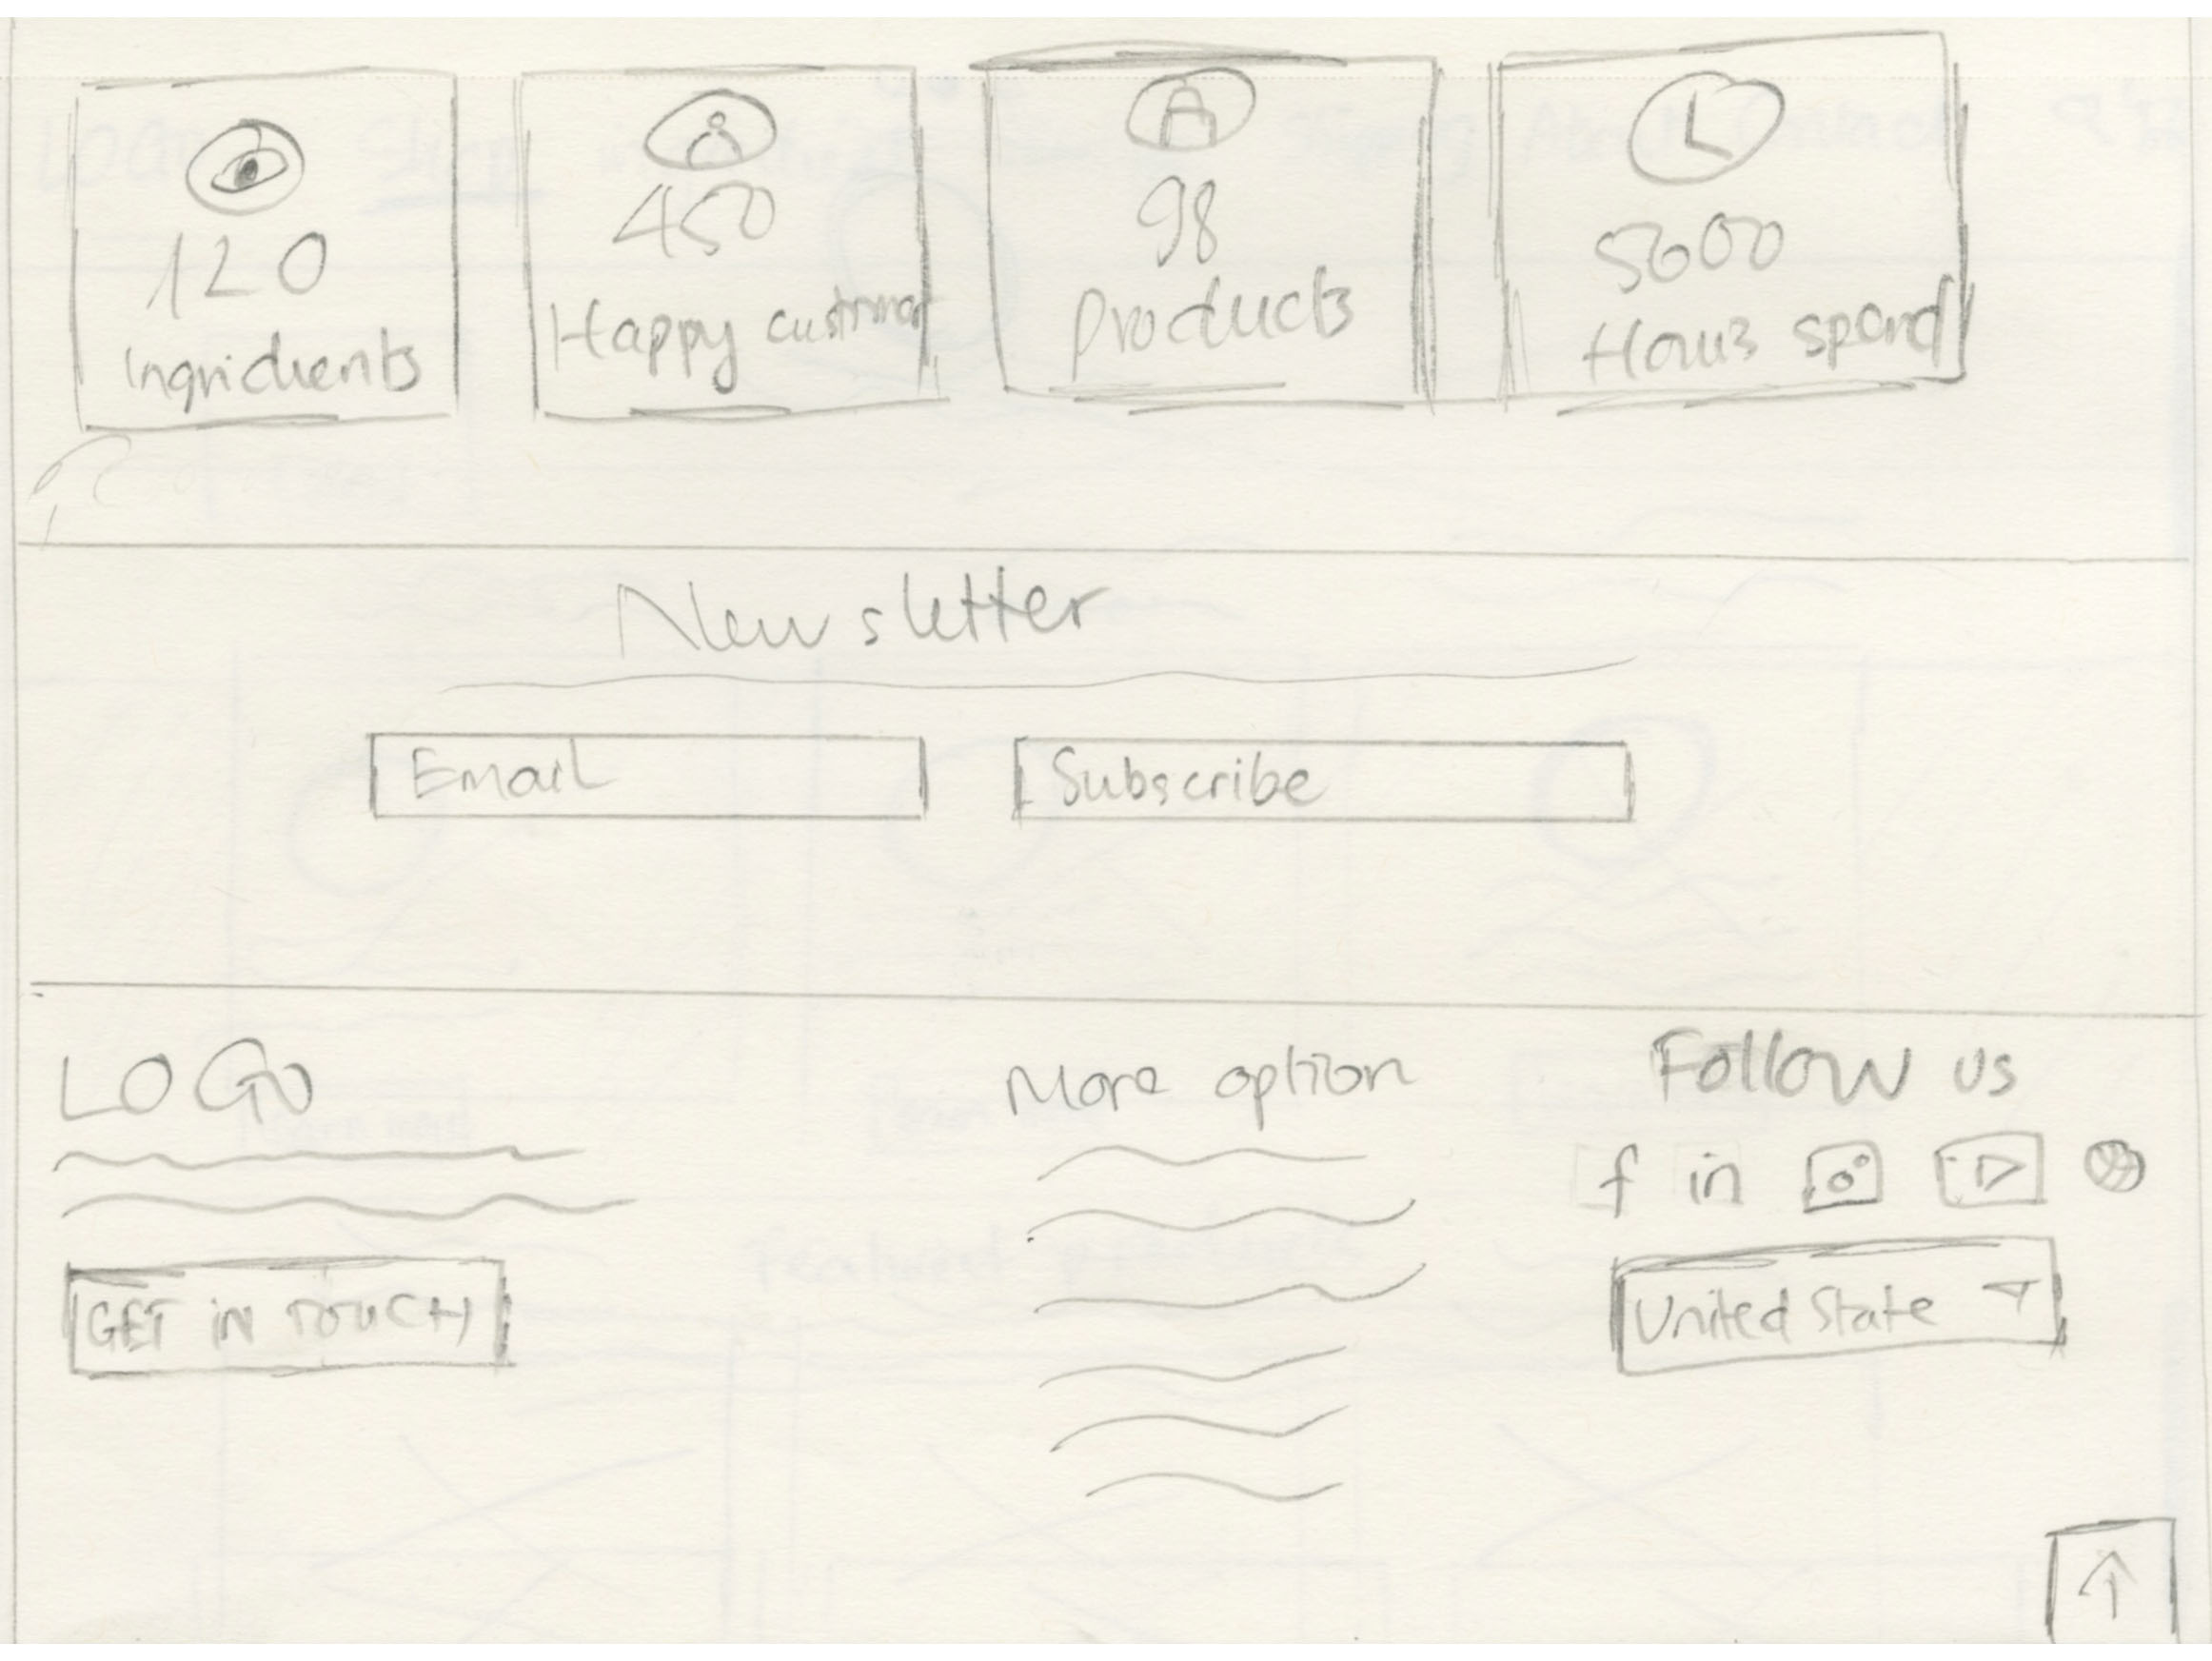 120
Ingridients
450
Happy
98
Products
5000
Hours spend
Newsletter
Email
Subscribe
LOGO
GET iN TOUCH
More option
Follow us
f in
United State